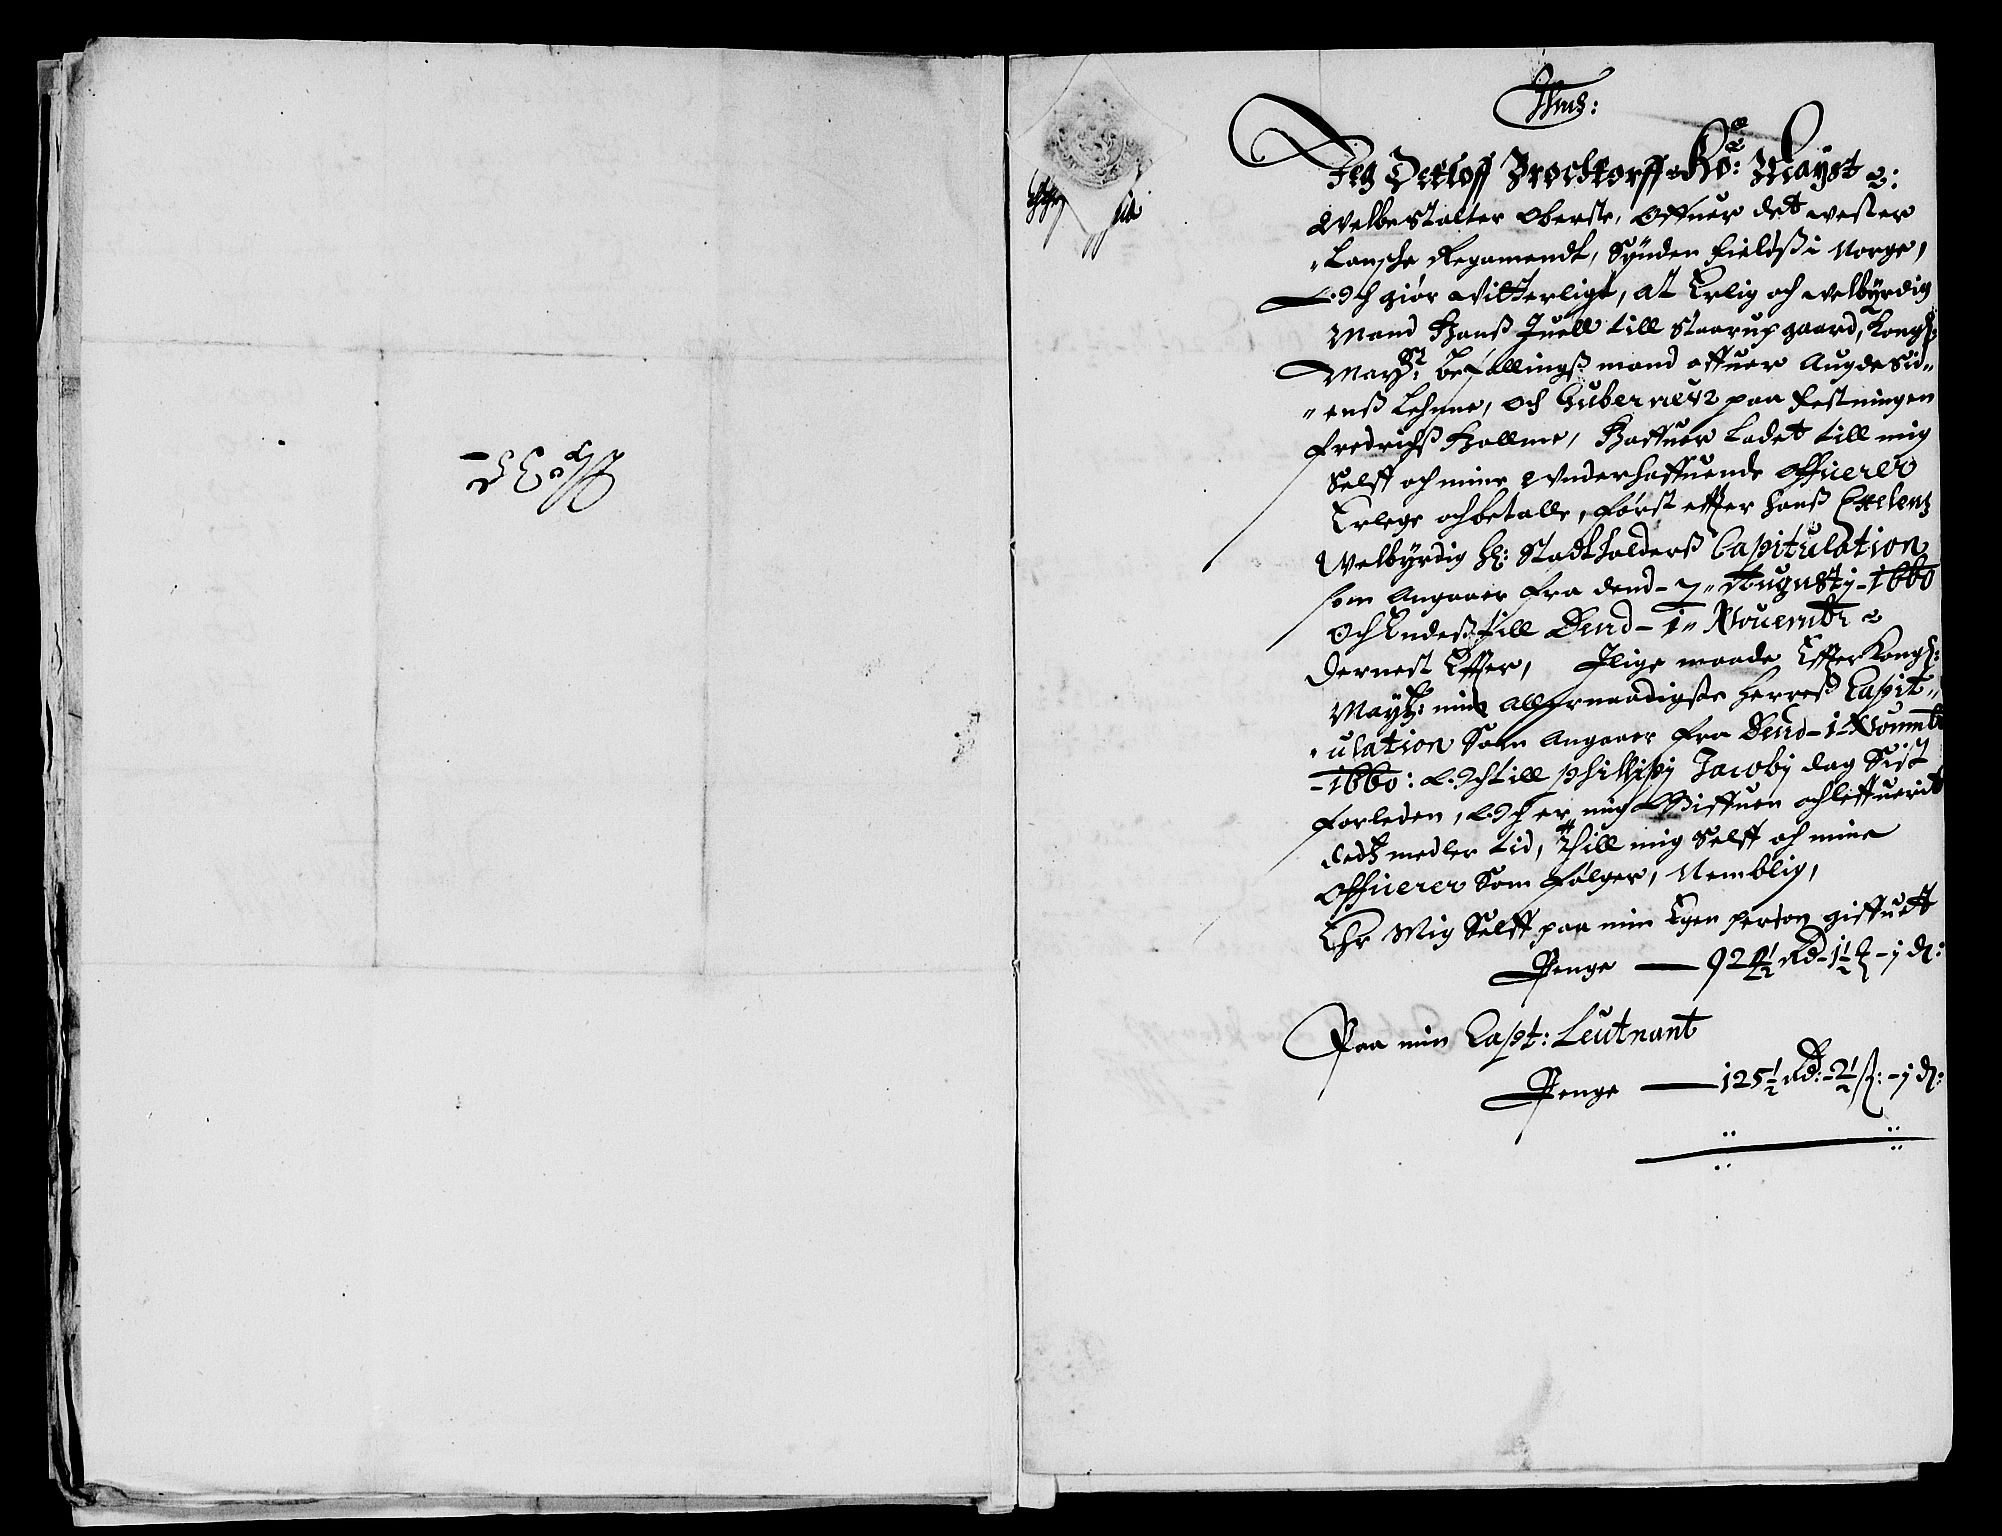 Jeg Detloff Brocktorff Ko: Mayst
Welbestalter Oberste, Offuer det wester
Lansche Regamendt, Synden fieldß i Norge,
Och giør Vitterligt, at Erlig och welbÿrdig
Mand Hanß Juell till Staarupgaard, Kongl:
Mayst: befallingßmand offuer Augdesid„
„enß Lehnne, och Guberneur paa festningen
fredrichß Hollme, Haffuer ladet till mig
Selff och mine Vnderhaffuende Officerer
Erlege och betalle, først efter hanß Excelentz
Welbÿrdig Hr: Stadtholderß Capitulation
som Angaaer fra dend - 7 Augustij - 1660
Och Endeß till Dend - 1 Nouembr
Dernest Effter, Jlige maade Effter Kongl:
Maytz: min allernaadigste herreß Capit„
„ulation Som Angaaer fra Dend - 1 Nouembr
- 1660: Och till Phillipij Jacobij dag Sist
forleden, Och er mig Giffuen och leffuerit
dedtz medler tid, Thill mig Selff och mine
Officerer Som følger, Nemblig,
Ehr Mig Selff paa min Egen person giffuett
Penge — 924½ Rd - 1½ - j
Paa min Capt: Leutnant
Penge — 125½ Rd: - 2½ ß: - j